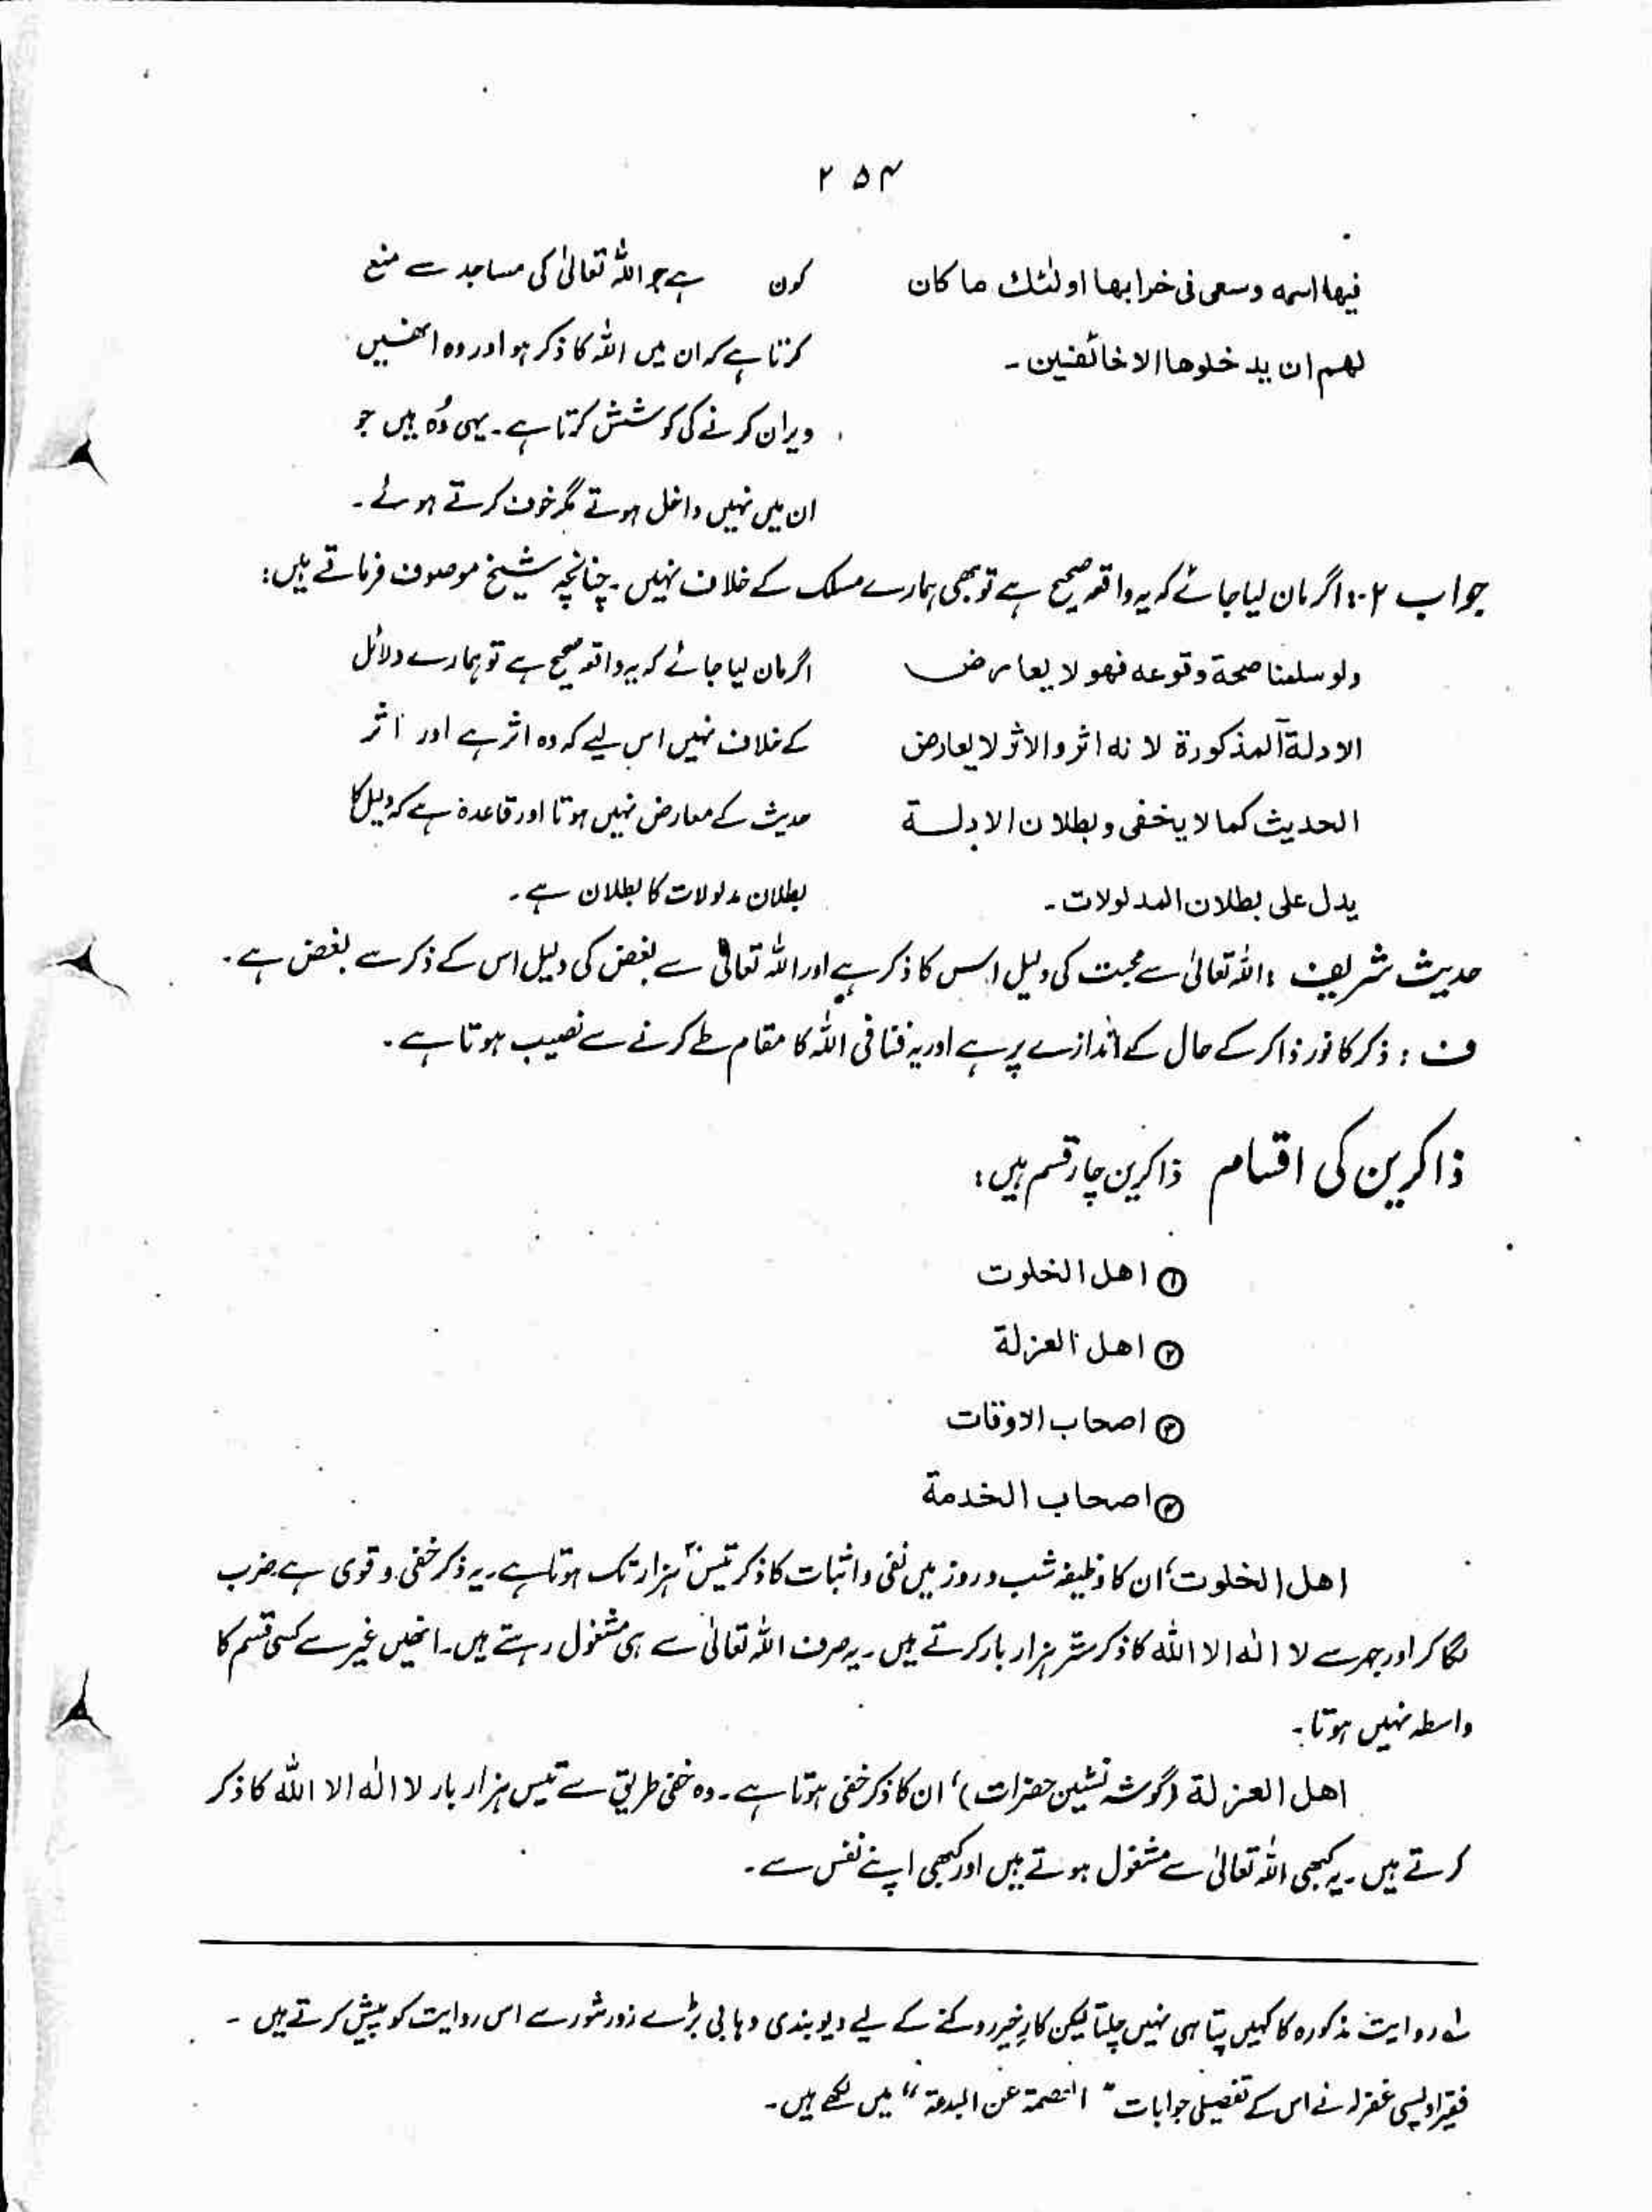 ۲۵۴
فیها اسمه وسعی فی خرابها اولئك ما کان
لهم ان ید خلوها الا خائفین۔
کون ہے جو اللہ تعالیٰ کی مساجد سے منع
کرتا ہے کہ ان میں اللہ کا ذکر ہو اور وہ انھیں
ویران کرنے کی کوشش کرتا ہے۔ یہی وُہ ہیں جو
ان میں نہیں داخل ہوتے مگر خوف کرتے ہوئے۔
جواب ۲: اگر مان لیا جائے کہ یہ واقعہ صحیح ہے تو بھی ہمارے مسلک کے خلاف نہیں۔ چنانچہ شیخ موصوف فرماتے ہیں:
ولو سلمنا صحة وقوعه فهو لا یعارض
الادلة المذکورة لانه اثر والاثر لا یعارض
الحدیث کما لا یخفی وبطلان الادلة
یدل علی بطلان المدلولات۔
اگر مان لیا جائے کہ یہ واقعہ صحیح ہے تو ہمارے دلائل
کے خلاف نہیں اس لیے کہ وہ اثر ہے اور اثر
حدیث کے معارض نہیں ہوتا اور قاعدہ ہے کہ دلیل کا
بطلان مدلولات کا بطلان ہے۔
حدیث شریف : اللہ تعالیٰ سے محبت کی دلیل اس کا ذکر ہے اور اللہ تعالیٰ سے بغض کی دلیل اس کے ذکر سے بغض ہے۔
ف : ذکر کا نور ذاکر کے حال کے اندازے پر ہے اور یہ فنا فی اللہ کا مقام طے کرنے سے نصیب ہوتا ہے۔
ذاکرین کی اقسام ذاکرین چار قسم ہیں:
① اهل الخلوت
② اهل العزلة
③ اصحاب الاوقات
④ اصحاب الخدمة
اهل الخلوت، ان کا وظیفہ شب و روز میں نفی و اثبات کا ذکر تیس ۳۰ ہزار تک ہوتا ہے۔ یہ ذکر خفی و قوی ہے ضرب
لگا کر اور جہر سے لا الٰه الا الله کا ذکر ستر ہزار بار کرتے ہیں۔ یہ صرف اللہ تعالیٰ سے ہی مشغول رہتے ہیں۔ انھیں غیر سے کسی قسم کا
واسطہ نہیں ہوتا۔
اهل العزلة (گوشہ نشین حضرات)، ان کا ذکر خفی ہوتا ہے۔ وہ خفی طریق سے تیس ہزار بار لا الٰه الا الله کا ذکر
کرتے ہیں۔ یہ کبھی اللہ تعالیٰ سے مشغول ہوتے ہیں اور کبھی اپنے نفس سے۔
روایت مذکورہ کا کہیں پتا ہی نہیں چلتا لیکن کارِ خیر روکنے کے لیے دیوبندی وہابی بڑے زور شور سے اس روایت کو پیش کرتے ہیں۔
فقیر اویسی غفرلہ نے اس کے تفصیلی جوابات " العصمة عن البدعة " میں لکھے ہیں۔